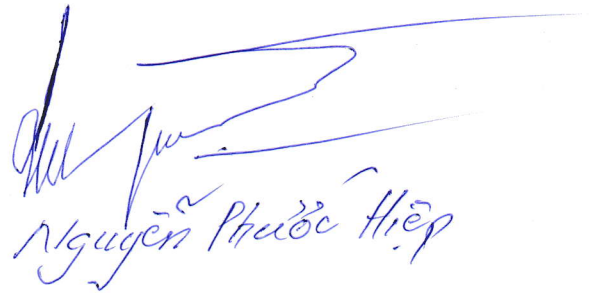 Nguyễn Phước Hiệp